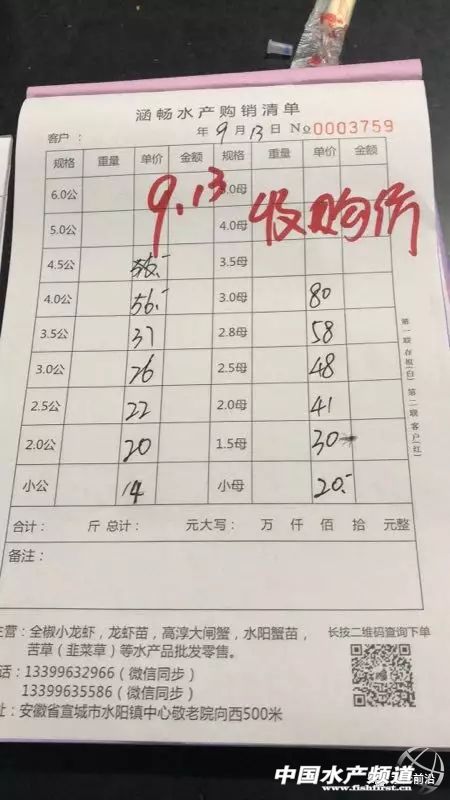 涵畅水产购销清单
客户： 年9月13日 No0003759
规格 重量 单价 金额 规格 重量 单价 金额
6.0公 .0母
9.13
5.0公 4.0母
收购价
4.5公 3.5母
4.0公 56.- 3.0母 80
3.5公 37 2.8母 58
3.0公 26 2.5母 48
2.5公 22 2.0母 41
2.0公 20 1.5母 30
小公 14 小母 20.-
合计： 斤 总计： 元大写： 万 仟 佰 拾 元整
备注：
第一联 存根(白) 第二联 客户(红)
主营：全椒小龙虾，龙虾苗，高淳大闸蟹，水阳蟹苗，
苦草（韭菜草）等水产品批发零售。
长按二维码查询下单
话：13399632966（微信同步）
13399635586（微信同步）
址：安徽省宣城市水阳镇中心敬老院向西500米
中国水产频道
www.fishfirst.cn
前沿